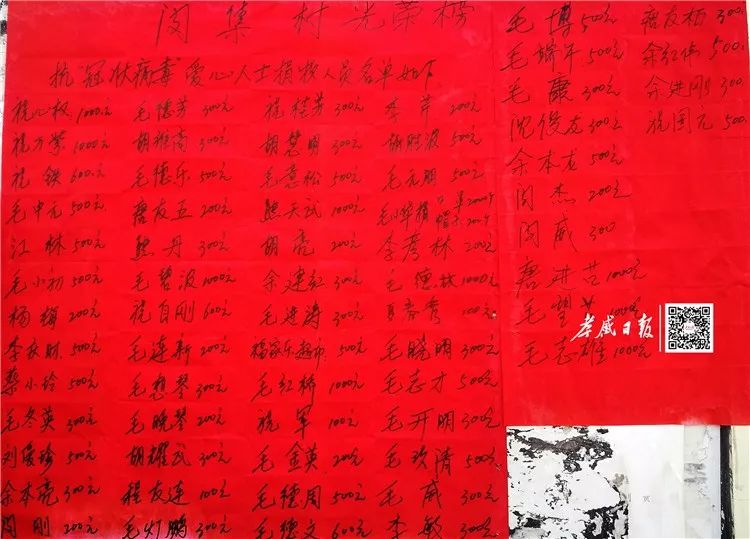 闵集村光荣榜
抗"冠状病毒"爱心人士捐款人员名单如下
祝心权 1000元 毛德芳 300元 祝桂芳 300元 李芹 200元
祝方荣 1000元 胡雅高 300元 胡慧明 300元 胡胜波 500元
祝铁 600元 毛德乐 500元 毛意松 500元 毛元明 500元
毛中元 500元 唐友五 200元 熊天武 1000元 毛小华捐
江林 500元 熊丹 300元 胡亮 200元 李彦林 200元
毛小初 500元 毛碧波 1000元 余建红 300元 毛德 1000元
杨娟 200元 祝自刚 600元 毛进涛 300元 夏春秀 100元
李良财 500元 毛连新 200元 福家乐超市 500元 毛晓明 300元
蔡小玲 500元 毛想琴 300元 毛红桥 1000元 毛志才 500元
毛冬英 300元 毛晚琴 200元 祝军 100元 毛开明 300元
刘爱珍 500元 胡耀武 300元 毛金英 200元 毛玖清 500元
余本亮 300元 程友连 100元 毛德周 500元 毛威 300元
闵刚 200元 毛灯鹏 300元 毛德文 600元 李敏 300元
毛博 500元 唐友栢 300元
毛端午 500元 余红伟 500元
毛康 300元 余进刚 300元
沈俊友 300元 祝国元 500元
余本龙 500元
闵杰 200元
闵威 300
唐进苦 1000元
毛望 1000元
毛志雄 1000元
孝感日报